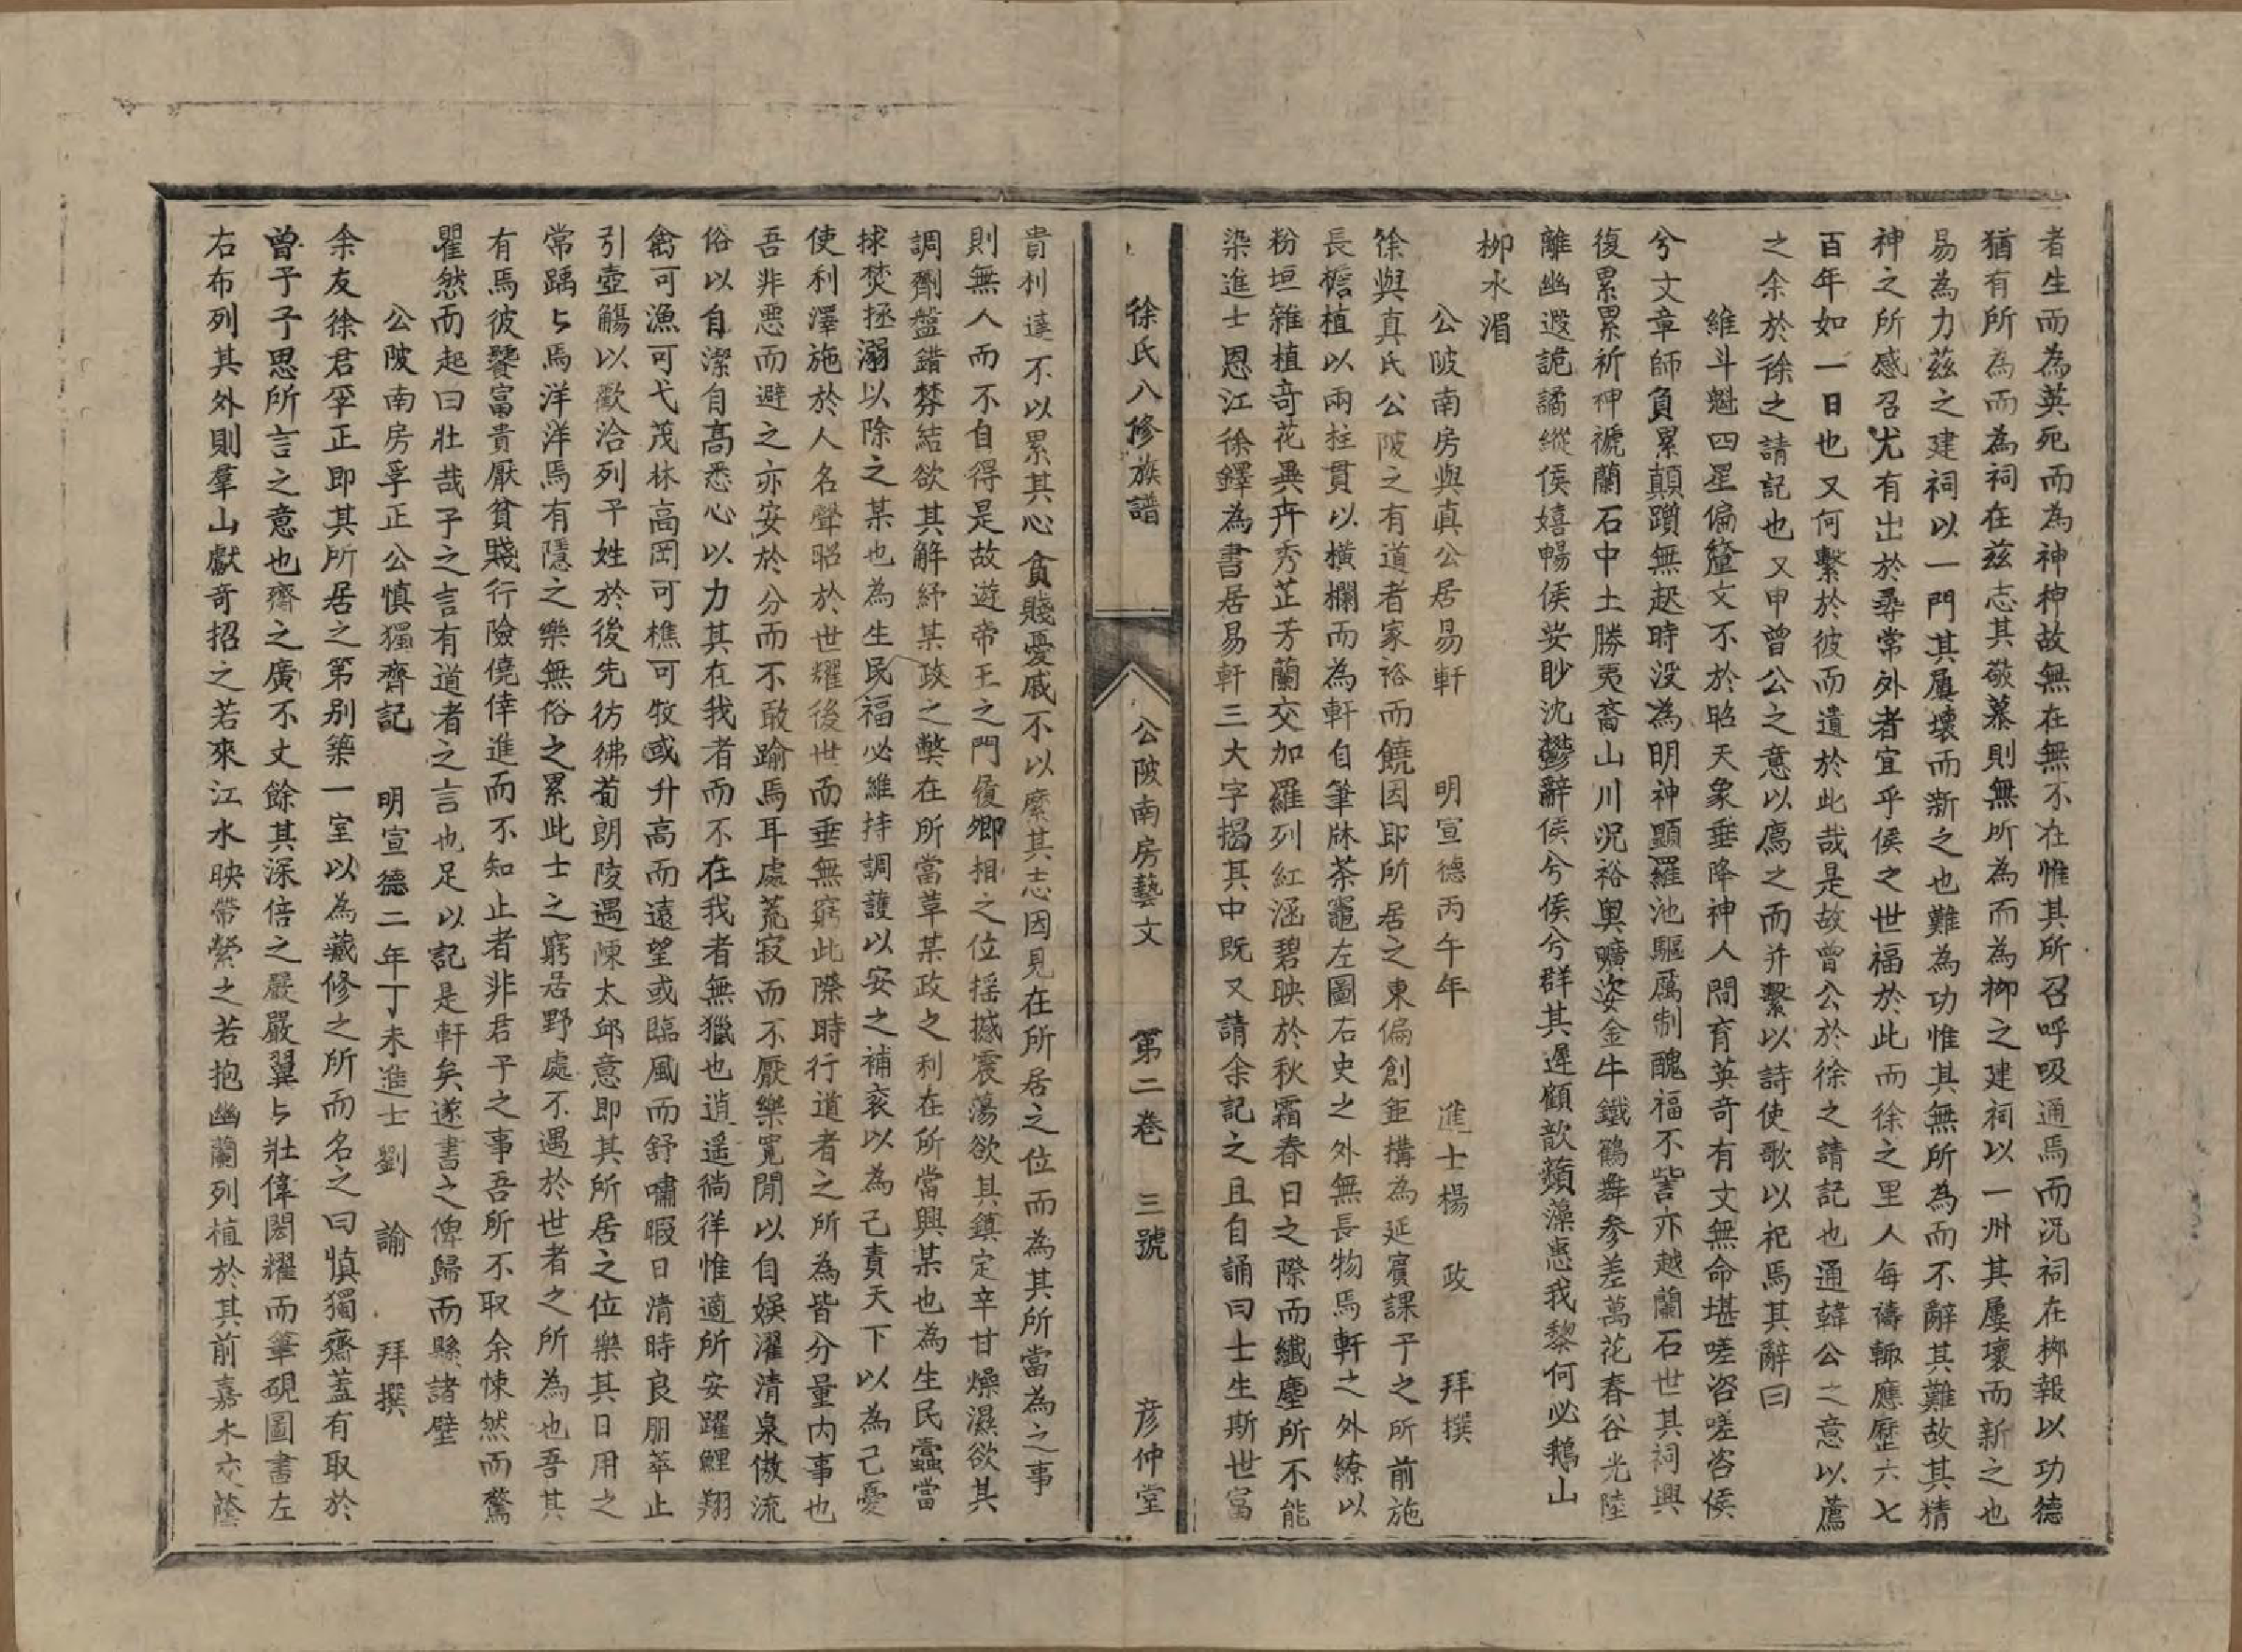 者生而為英死而為神神故無在無不在惟其所召呼吸通焉而況祠在柳報以功德
猶有所為而為祠在茲志其敬慕則無所為而為柳之建祠以一州其屢壞而新之也
易為力茲之建祠以一門其屢壞而新之也難為功惟其無所為而不辭其難故其精
神之所感召尤有出於尋常外者宜乎侯之世福於此而徐之里人每禱輒應歷六七
百年如一日也又何繫於彼而遺於此哉是故曾公於徐之請記也通韓公之意以薦
之余於徐之請記也又申曾公之意以廌之而并繫以詩使歌以祀焉其辭曰
維斗魁四星偏釐文不於昭天象垂降神人間育英奇有文無命堪嗟咨嗟咨侯
兮文章師負累顛躓無起時没為明神顯羅池驅厲制醜福不訾亦越蘭石世其祠興
復累累祈神禠蘭石中土勝夷裔山川況裕輿曠姿金牛鐵鶴舞參差萬花春谷光陸
離幽遐詭譎縱侯嬉暢侯娑眇沈鬱辭侯兮侯兮群其遲顧歆蘋藻惠我黎何必鵝山
柳水湄
公陂南房與真公居易軒 明宣德丙午年 進士楊 政 拜撰
徐與真氏公陂之有道者家裕而饒因即所居之東偏創鉅構為延賓課子之所前施
長檐植以兩柱貫以橫欄而為軒自筆牀茶竈左圖右史之外無長物焉軒之外繚以
粉垣雜植奇花異卉秀芷芳蘭交加羅列紅涵碧映於秋霜春日之際而纖塵所不能
染進士恩江徐鐸為書居易軒三大字揭其中既又請余記之且自誦曰士生斯世富
徐氏八修族譜 公陂南房藝文 第二卷 三號 彥仲堂
貴利達不以累其心貪賤憂戚不以縻其志因見在所居之位而為其所當為之事
則無人而不自得是故遊帝王之門履卿相之位搖撼震蕩欲其鎮定辛甘燥濕欲其
調劑盤錯棼結欲其解紓某政之獘在所當革某政之利在所當興某也為生民蠹當
捄焚拯溺以除之某也為生民福必維持調護以安之補衮以為己責天下以為己憂
使利澤施於人名聲昭於世耀後世而垂無窮此際時行道者之所為皆分量內事也
吾非悪而避之亦安於分而不敢踰焉耳處荒寂而不厭樂寬閒以自娱濯清泉傲流
俗以自潔自高悉心以力其在我者而不在我者無獵也逍遥徜徉惟適所安躍鯉翔
禽可漁可弋茂林高岡可樵可牧或升高而遠望或臨風而舒嘯暇日清時良朋萃止
引壺觴以歡洽列子姓於後先彷彿荀朗陵遇陳太邱意即其所居之位樂其日用之
常踽ㄅ焉洋洋焉有隱之樂無俗之累此士之窮居野處不遇於世者之所為也吾其
有焉彼饕富貴厭貧賤行險僥倖進而不知止者非君子之事吾所不取余悚然而驚
瞿然而起曰壯哉子之言有道者之言也足以記是軒矣遂書之俾歸而縣諸壁
公陂南房孚正公慎獨齊記 明宣德二年丁未進士劉 諭 拜撰
余友徐君孚正即其所居之第别築一室以為藏修之所而名之曰慎獨齋蓋有取於
曾子子思所言之意也齋之廣不丈餘其深倍之嚴嚴翼ㄅ壯偉閎耀而筆硯圖書左
右布列其外則羣山獻奇招之若來江水映帶縈之若抱幽蘭列植於其前嘉木交蔭